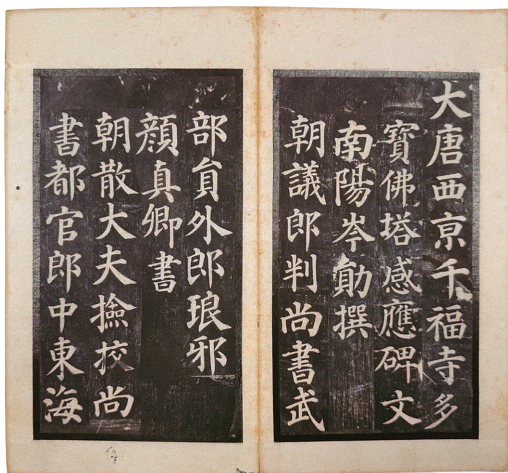 大唐西京千福寺多
寶佛塔感應碑文
南陽岑勛撰
朝議郎判尚書武
部貟外郎琅邪
顔真卿書
朝散大夫撿挍尚
書都官郎中東海